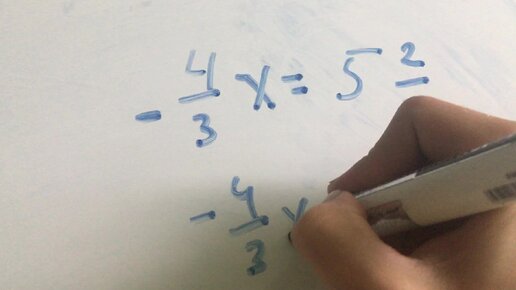 - 4/3 x = 5 2
- 4/3 x